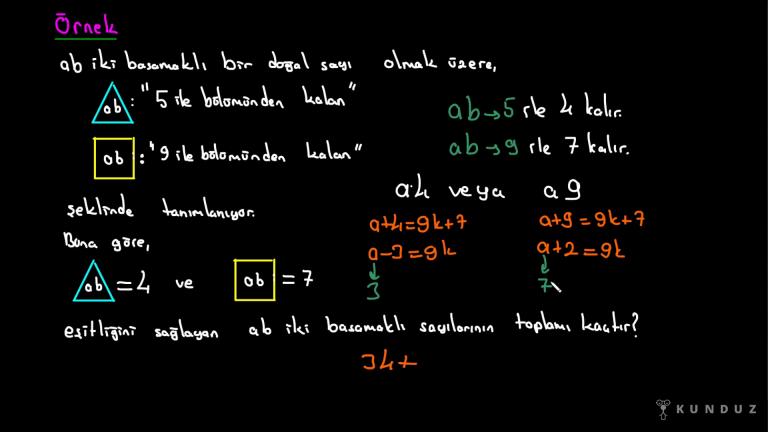 Örnek
ab iki basamaklı bir doğal sayı olmak üzere,
ab : "5 ile bölümünden kalan"
ab : "9 ile bölümünden kalan"
şeklinde tanımlanıyor.
Buna göre,
ab = 4 ve ab = 7
eşitliğini sağlayan ab iki basamaklı sayılarının toplamı kaçtır?
ab → 5 ile 4 kalır.
ab → 9 ile 7 kalır.
a4 veya a9
a+4=9k+7
a-3=9k
3
a+9=9k+7
a+2=9k
7
34+
KUNDUZ